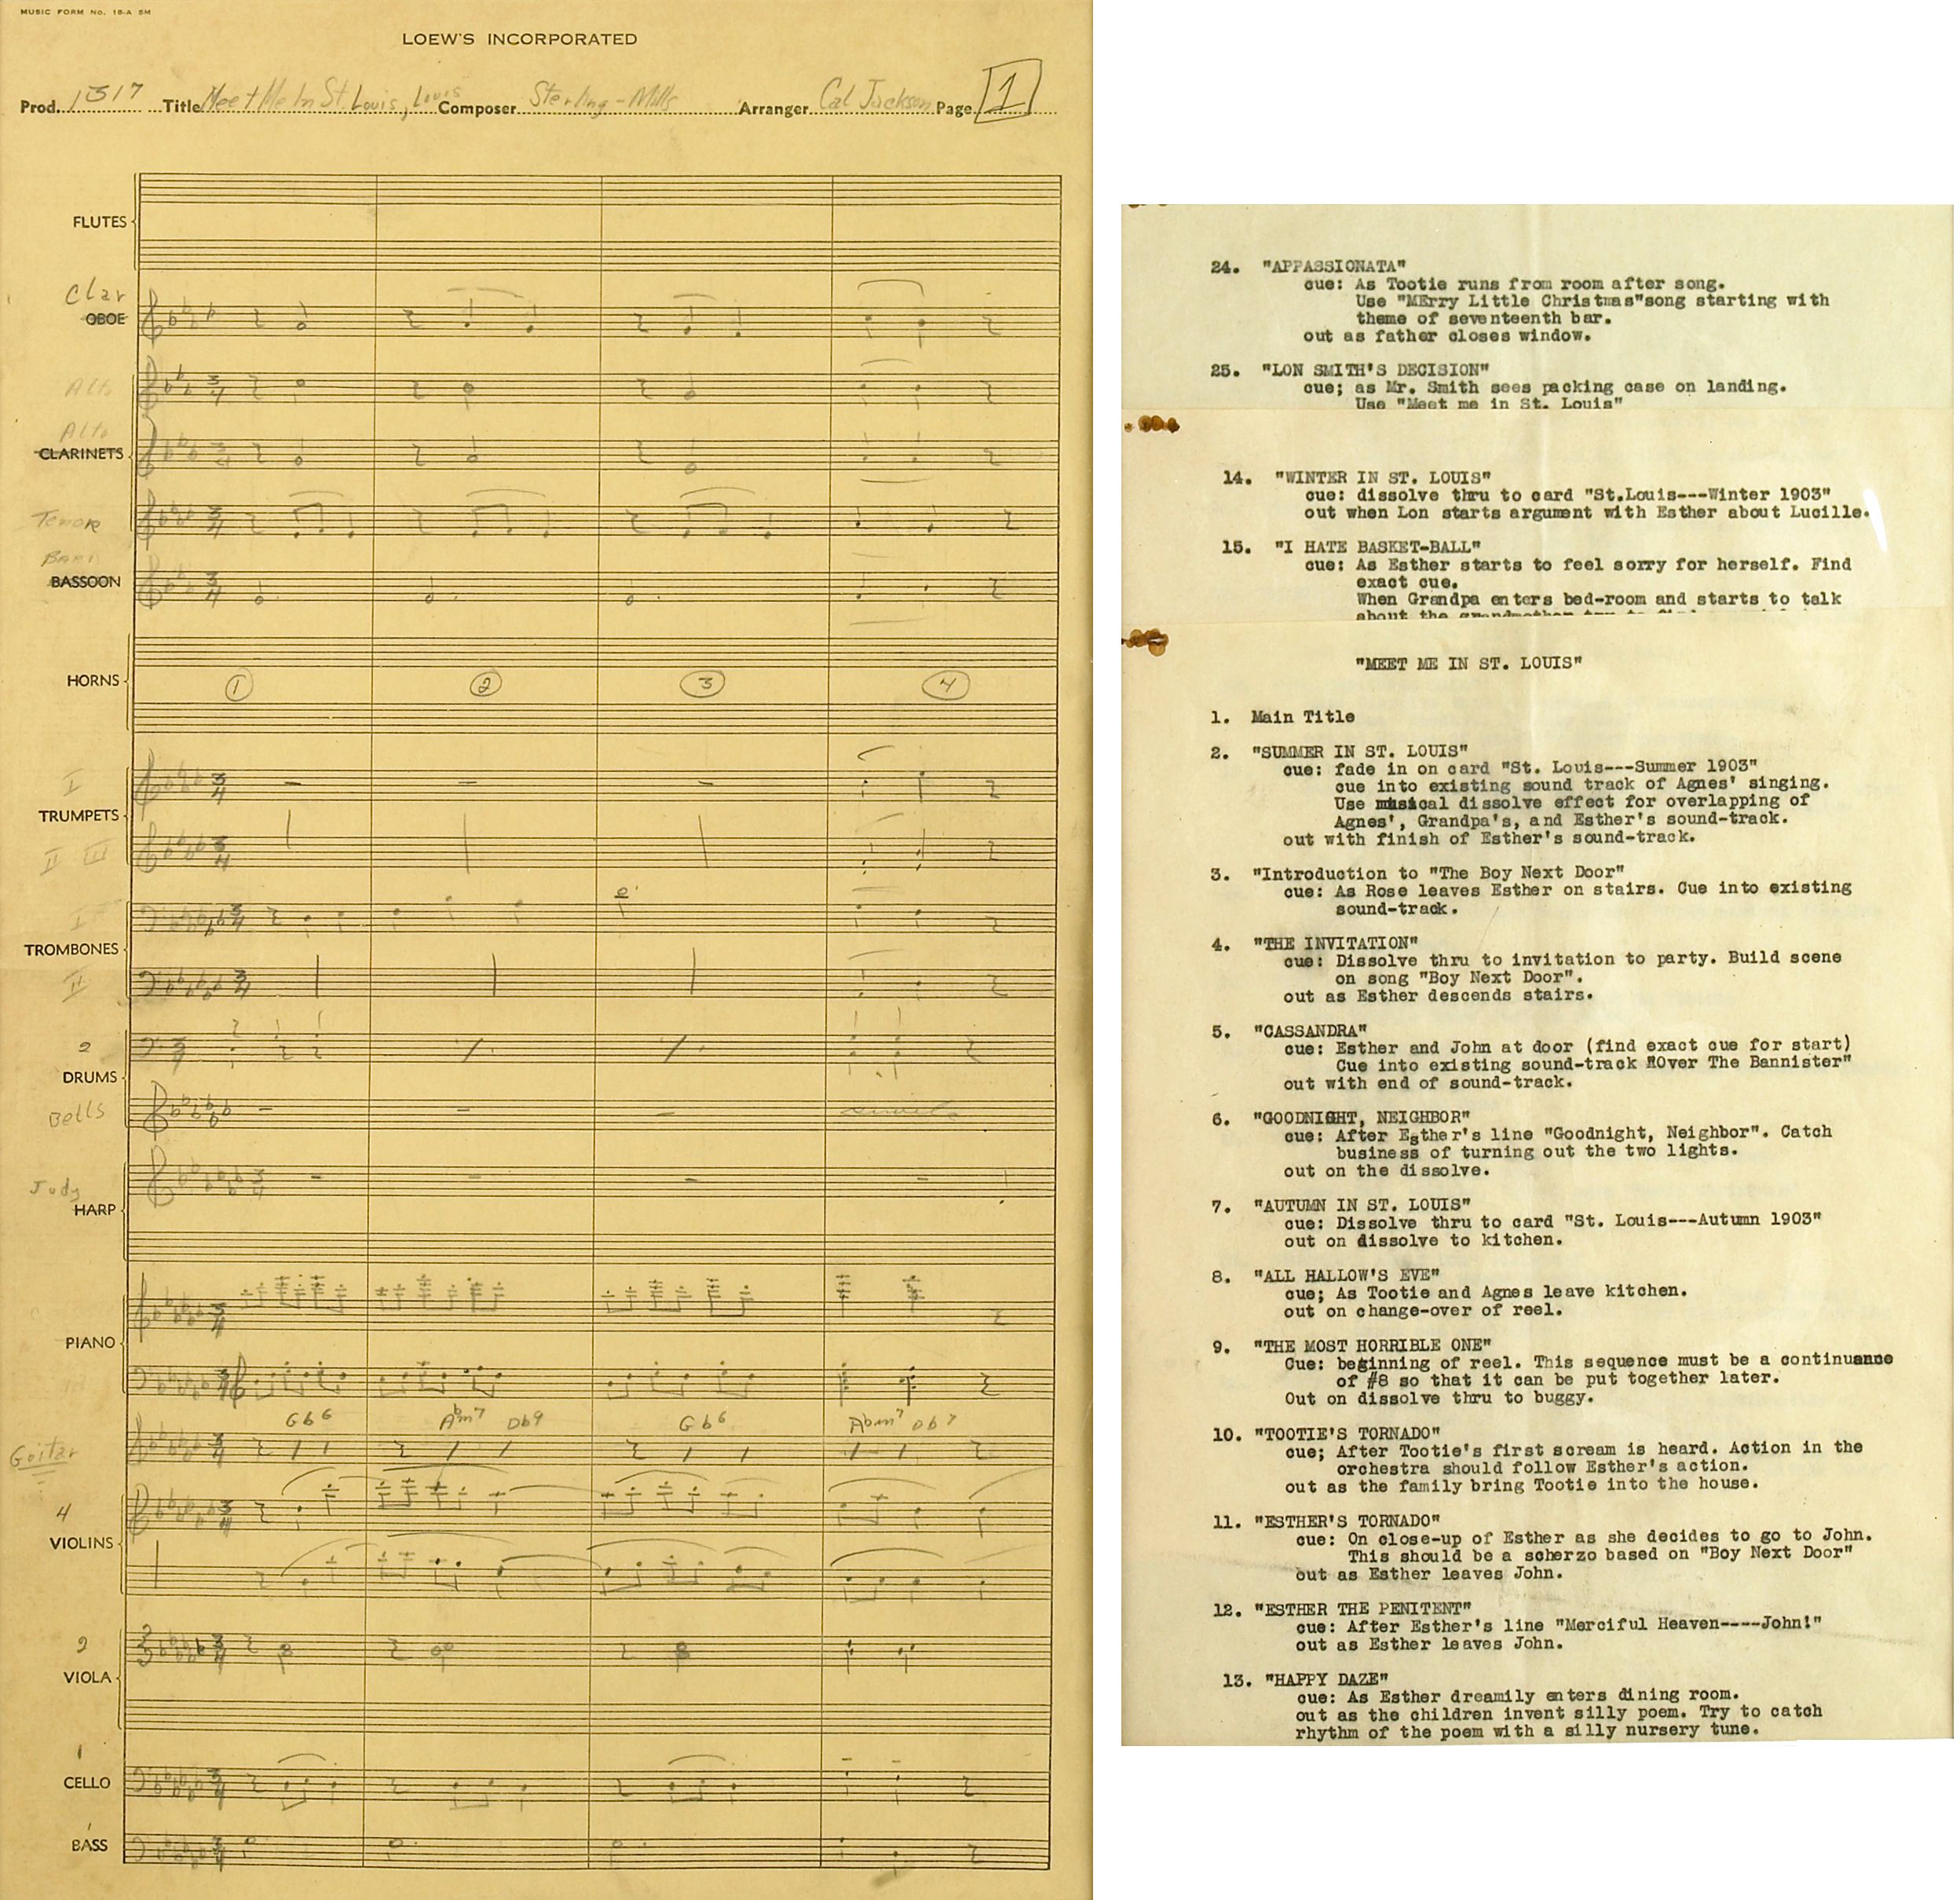 MUSIC FORM No. 16-A SM
LOEW'S INCORPORATED
Prod. 1317 Title Meet Me In St. Louis, Louis Composer Sterling-Mills Arranger Cal Jackson Page 1
FLUTES
Clar
OBOE
Alto
Alto
CLARINETS
Tenor
Bari
BASSOON
HORNS
1 2 3 4
I
TRUMPETS
II III
I
TROMBONES
II
2
DRUMS
Bells
Judy
HARP
PIANO
Gb6 Abm7 Db9 Gb6 Abm7 Db7
Guitar
4
VIOLINS
2
VIOLA
1
CELLO
1
BASS
24. "APPASSIONATA"
cue: As Tootie runs from room after song.
Use "MErry Little Christmas"song starting with
theme of seventeenth bar.
out as father closes window.
25. "LON SMITH'S DECISION"
cue; as Mr. Smith sees packing case on landing.
Use "Meet me in St. Louis"
14. "WINTER IN ST. LOUIS"
cue: dissolve thru to card "St.Louis---Winter 1903"
out when Lon starts argument with Esther about Lucille.
15. "I HATE BASKET-BALL"
cue: As Esther starts to feel sorry for herself. Find
exact cue.
When Grandpa enters bed-room and starts to talk
about the grandmother try to
"MEET ME IN ST. LOUIS"
1. Main Title
2. "SUMMER IN ST. LOUIS"
cue: fade in on card "St. Louis---Summer 1903"
cue into existing sound track of Agnes' singing.
Use musical dissolve effect for overlapping of
Agnes', Grandpa's, and Esther's sound-track.
out with finish of Esther's sound-track.
3. "Introduction to "The Boy Next Door"
cue: As Rose leaves Esther on stairs. Cue into existing
sound-track.
4. "THE INVITATION"
cue: Dissolve thru to invitation to party. Build scene
on song "Boy Next Door".
out as Esther descends stairs.
5. "CASSANDRA"
cue: Esther and John at door (find exact cue for start)
Cue into existing sound-track "Over The Bannister"
out with end of sound-track.
6. "GOODNIGHT, NEIGHBOR"
cue: After Esther's line "Goodnight, Neighbor". Catch
business of turning out the two lights.
out on the dissolve.
7. "AUTUMN IN ST. LOUIS"
cue: Dissolve thru to card "St. Louis---Autumn 1903"
out on dissolve to kitchen.
8. "ALL HALLOW'S EVE"
cue; As Tootie and Agnes leave kitchen.
out on change-over of reel.
9. "THE MOST HORRIBLE ONE"
Cue: beginning of reel. This sequence must be a continuance
of #8 so that it can be put together later.
Out on dissolve thru to buggy.
10. "TOOTIE'S TORNADO"
cue; After Tootie's first scream is heard. Action in the
orchestra should follow Esther's action.
out as the family bring Tootie into the house.
11. "ESTHER'S TORNADO"
cue: On close-up of Esther as she decides to go to John.
This should be a scherzo based on "Boy Next Door"
out as Esther leaves John.
12. "ESTHER THE PENITENT"
cue: After Esther's line "Merciful Heaven----John!"
out as Esther leaves John.
13. "HAPPY DAZE"
cue: As Esther dreamily enters dining room.
out as the children invent silly poem. Try to catch
rhythm of the poem with a silly nursery tune.